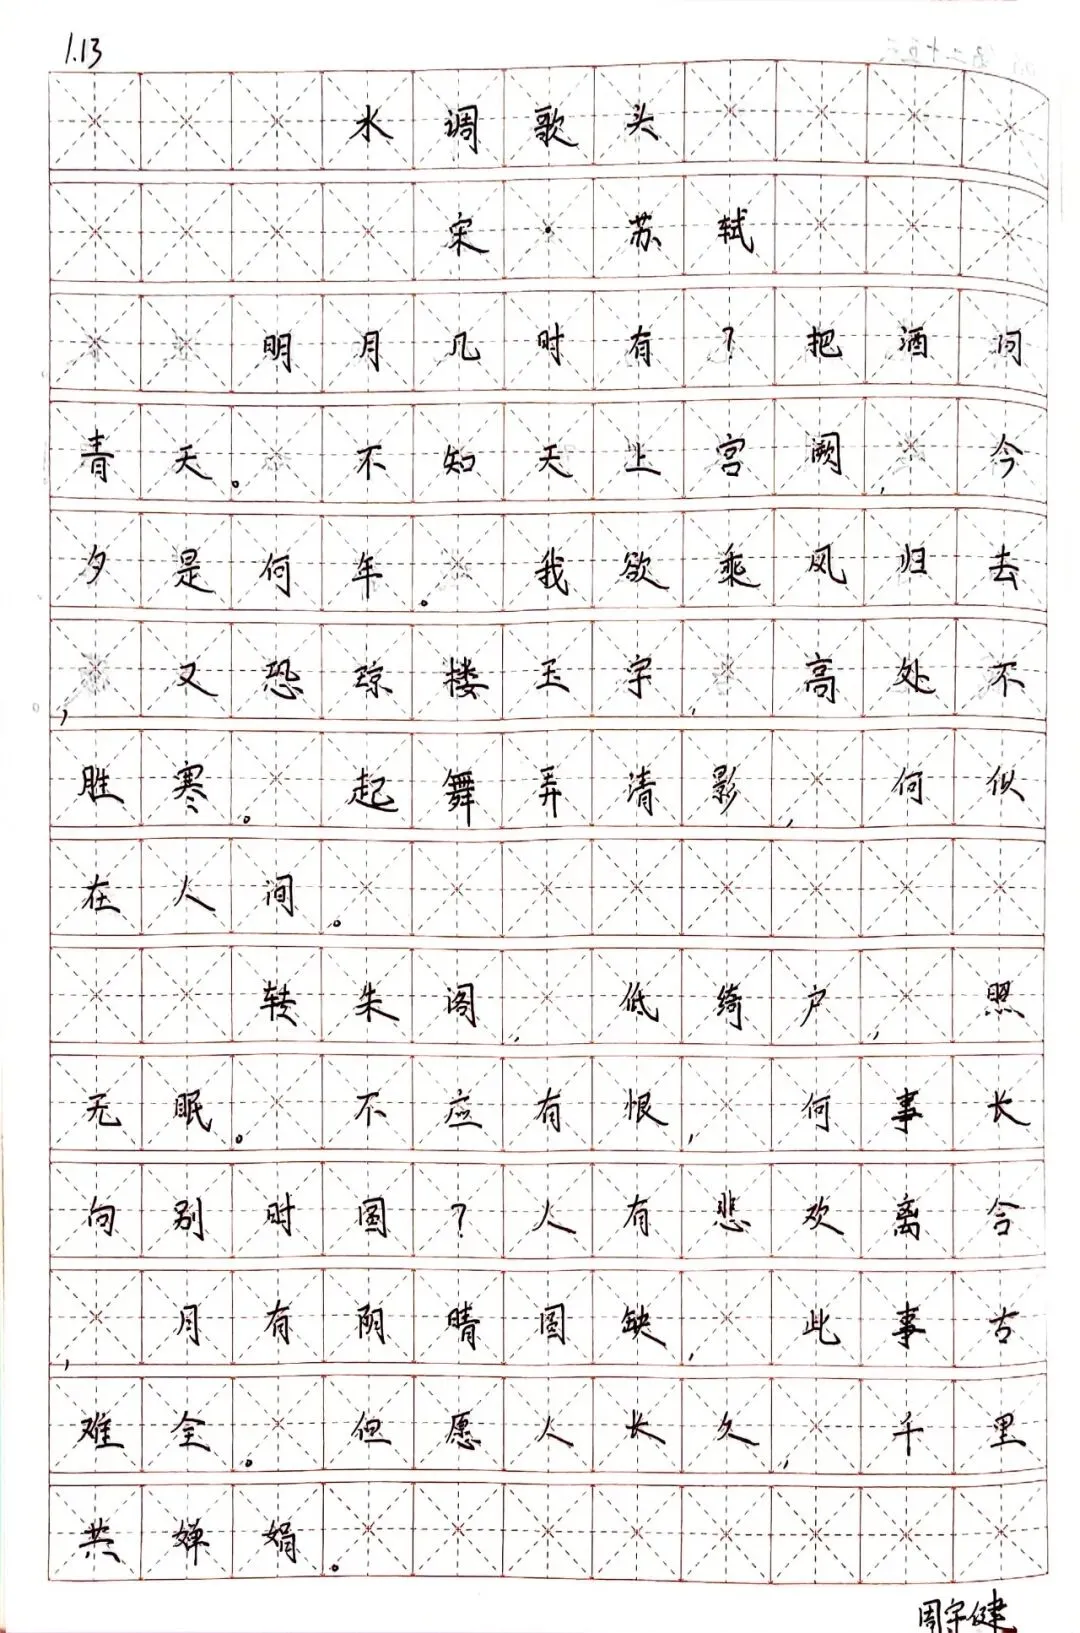 1.13
水调歌头
宋·苏轼
明月几时有？把酒问
青天。不知天上宫阙,今
夕是何年。我欲乘风归去
,又恐琼楼玉宇,高处不
胜寒。起舞弄清影,何似
在人间。
转朱阁,低绮户,照
无眠。不应有恨,何事长
向别时圆?人有悲欢离合
,月有阴晴圆缺,此事古
难全。但愿人长久,千里
共婵娟。
周宇健